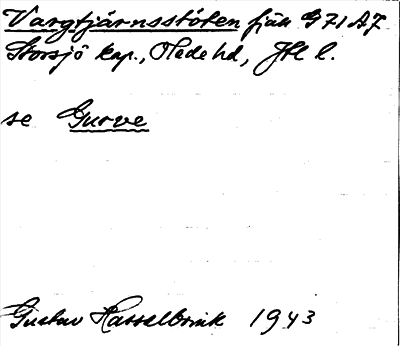 Vargtjärnsstöten fjäll G 71 A7
Storsjö kap., Hede hd, Jtl l.
se Gurve
Gustav Hasselbrink 1943